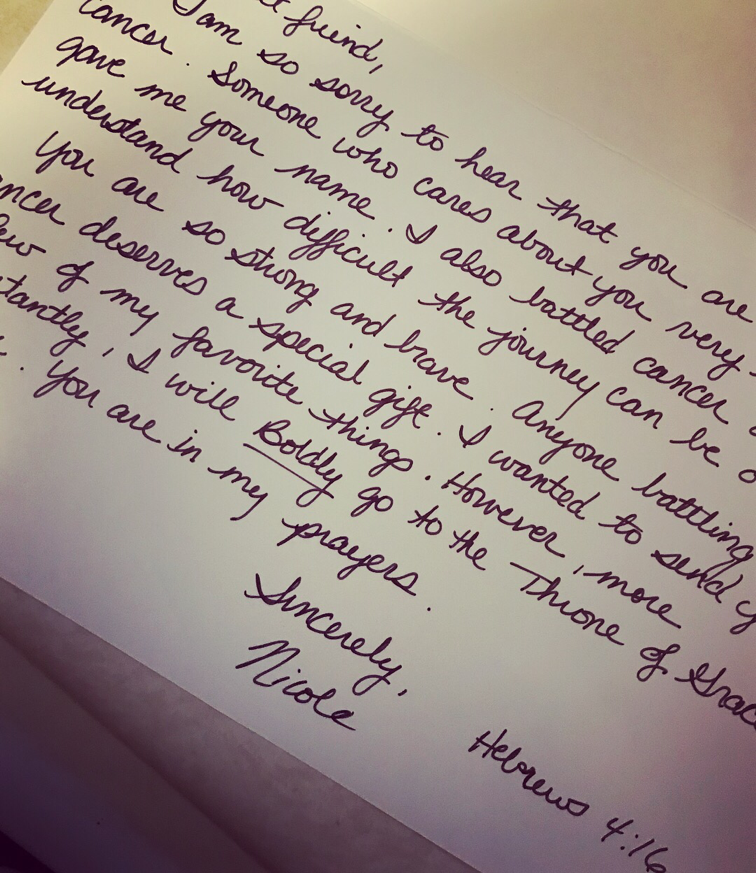 friend,
I am so sorry to hear that you are
cancer. Someone who cares about you very
gave me your name. I also battled cancer
understand how difficult the journey can be
You are so strong and brave. Anyone battling
ancer deserves a special gift. I wanted to send y
few of my favorite things. However, more
tantly, I will Boldly go to the Throne of Grac
. You are in my prayers.
Sincerely,
Nicole
Hebrews 4:16